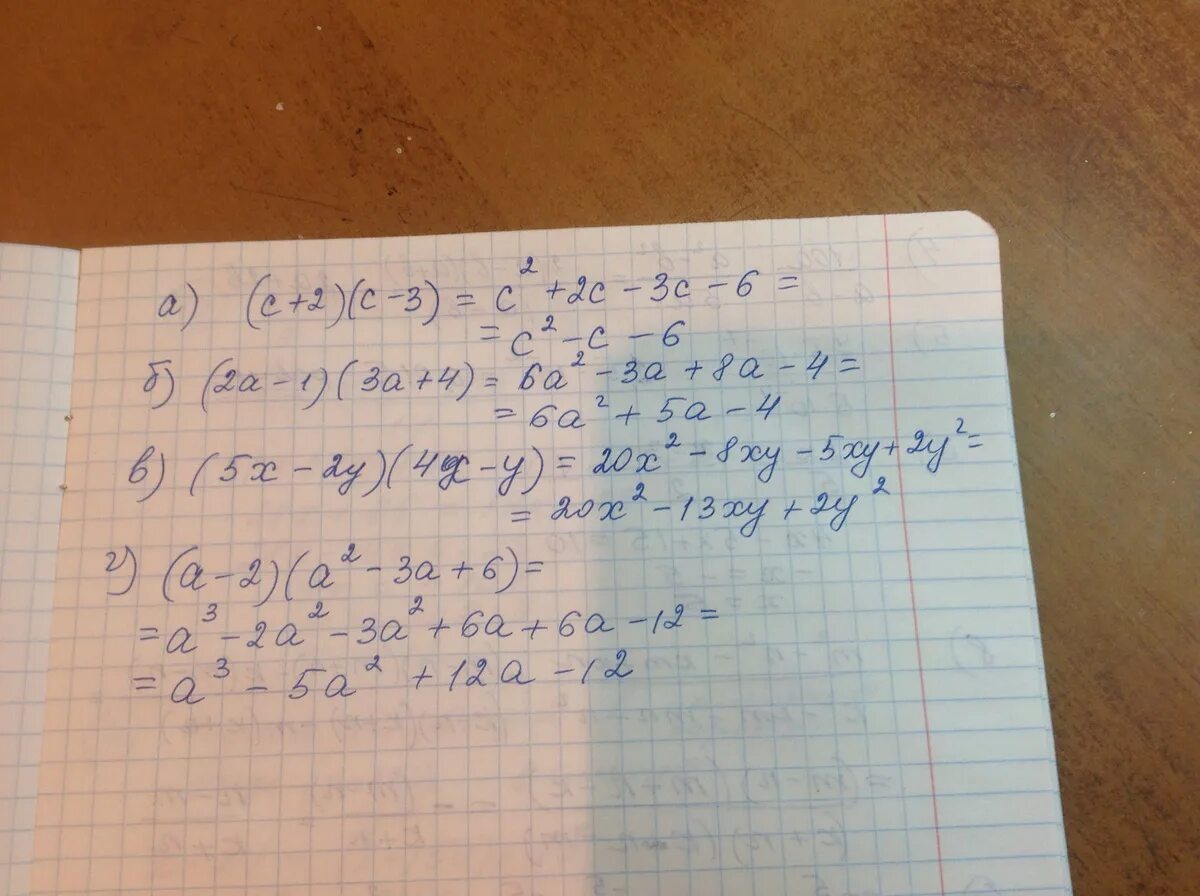 а) (c+2)(c-3) = c² + 2c - 3c - 6 =
= c² - c - 6
б) (2a - 1)(3a + 4) = 6a² - 3a + 8a - 4 =
= 6a² + 5a - 4
в) (5x - 2y)(4x - y) = 20x² - 8xy - 5xy + 2y² =
= 20x² - 13xy + 2y²
г) (a - 2)(a² - 3a + 6) =
= a³ - 2a² - 3a² + 6a + 6a - 12 =
= a³ - 5a² + 12a - 12